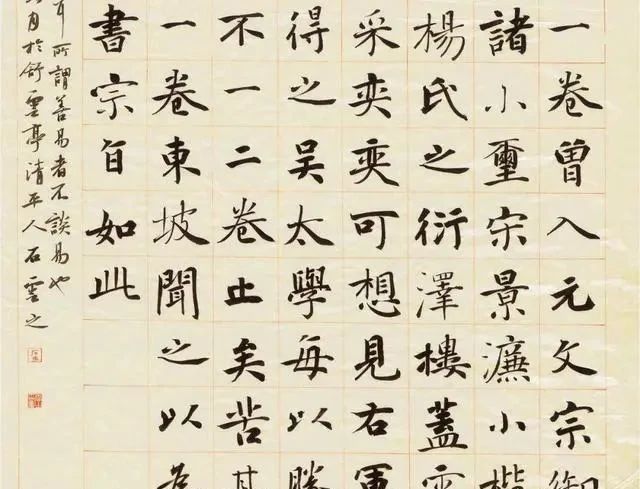 一卷曾入元文宗御
諸小璽宋景濂小楷
楊氏之衍澤樓蓋
采奕奕可想見右軍
得之吴太學每以勝
不一二卷止矣苦甘
一卷東坡聞之以為
書宗旨如此
耳所謂善易者不談易也
月於舒雲亭清平人石雲之